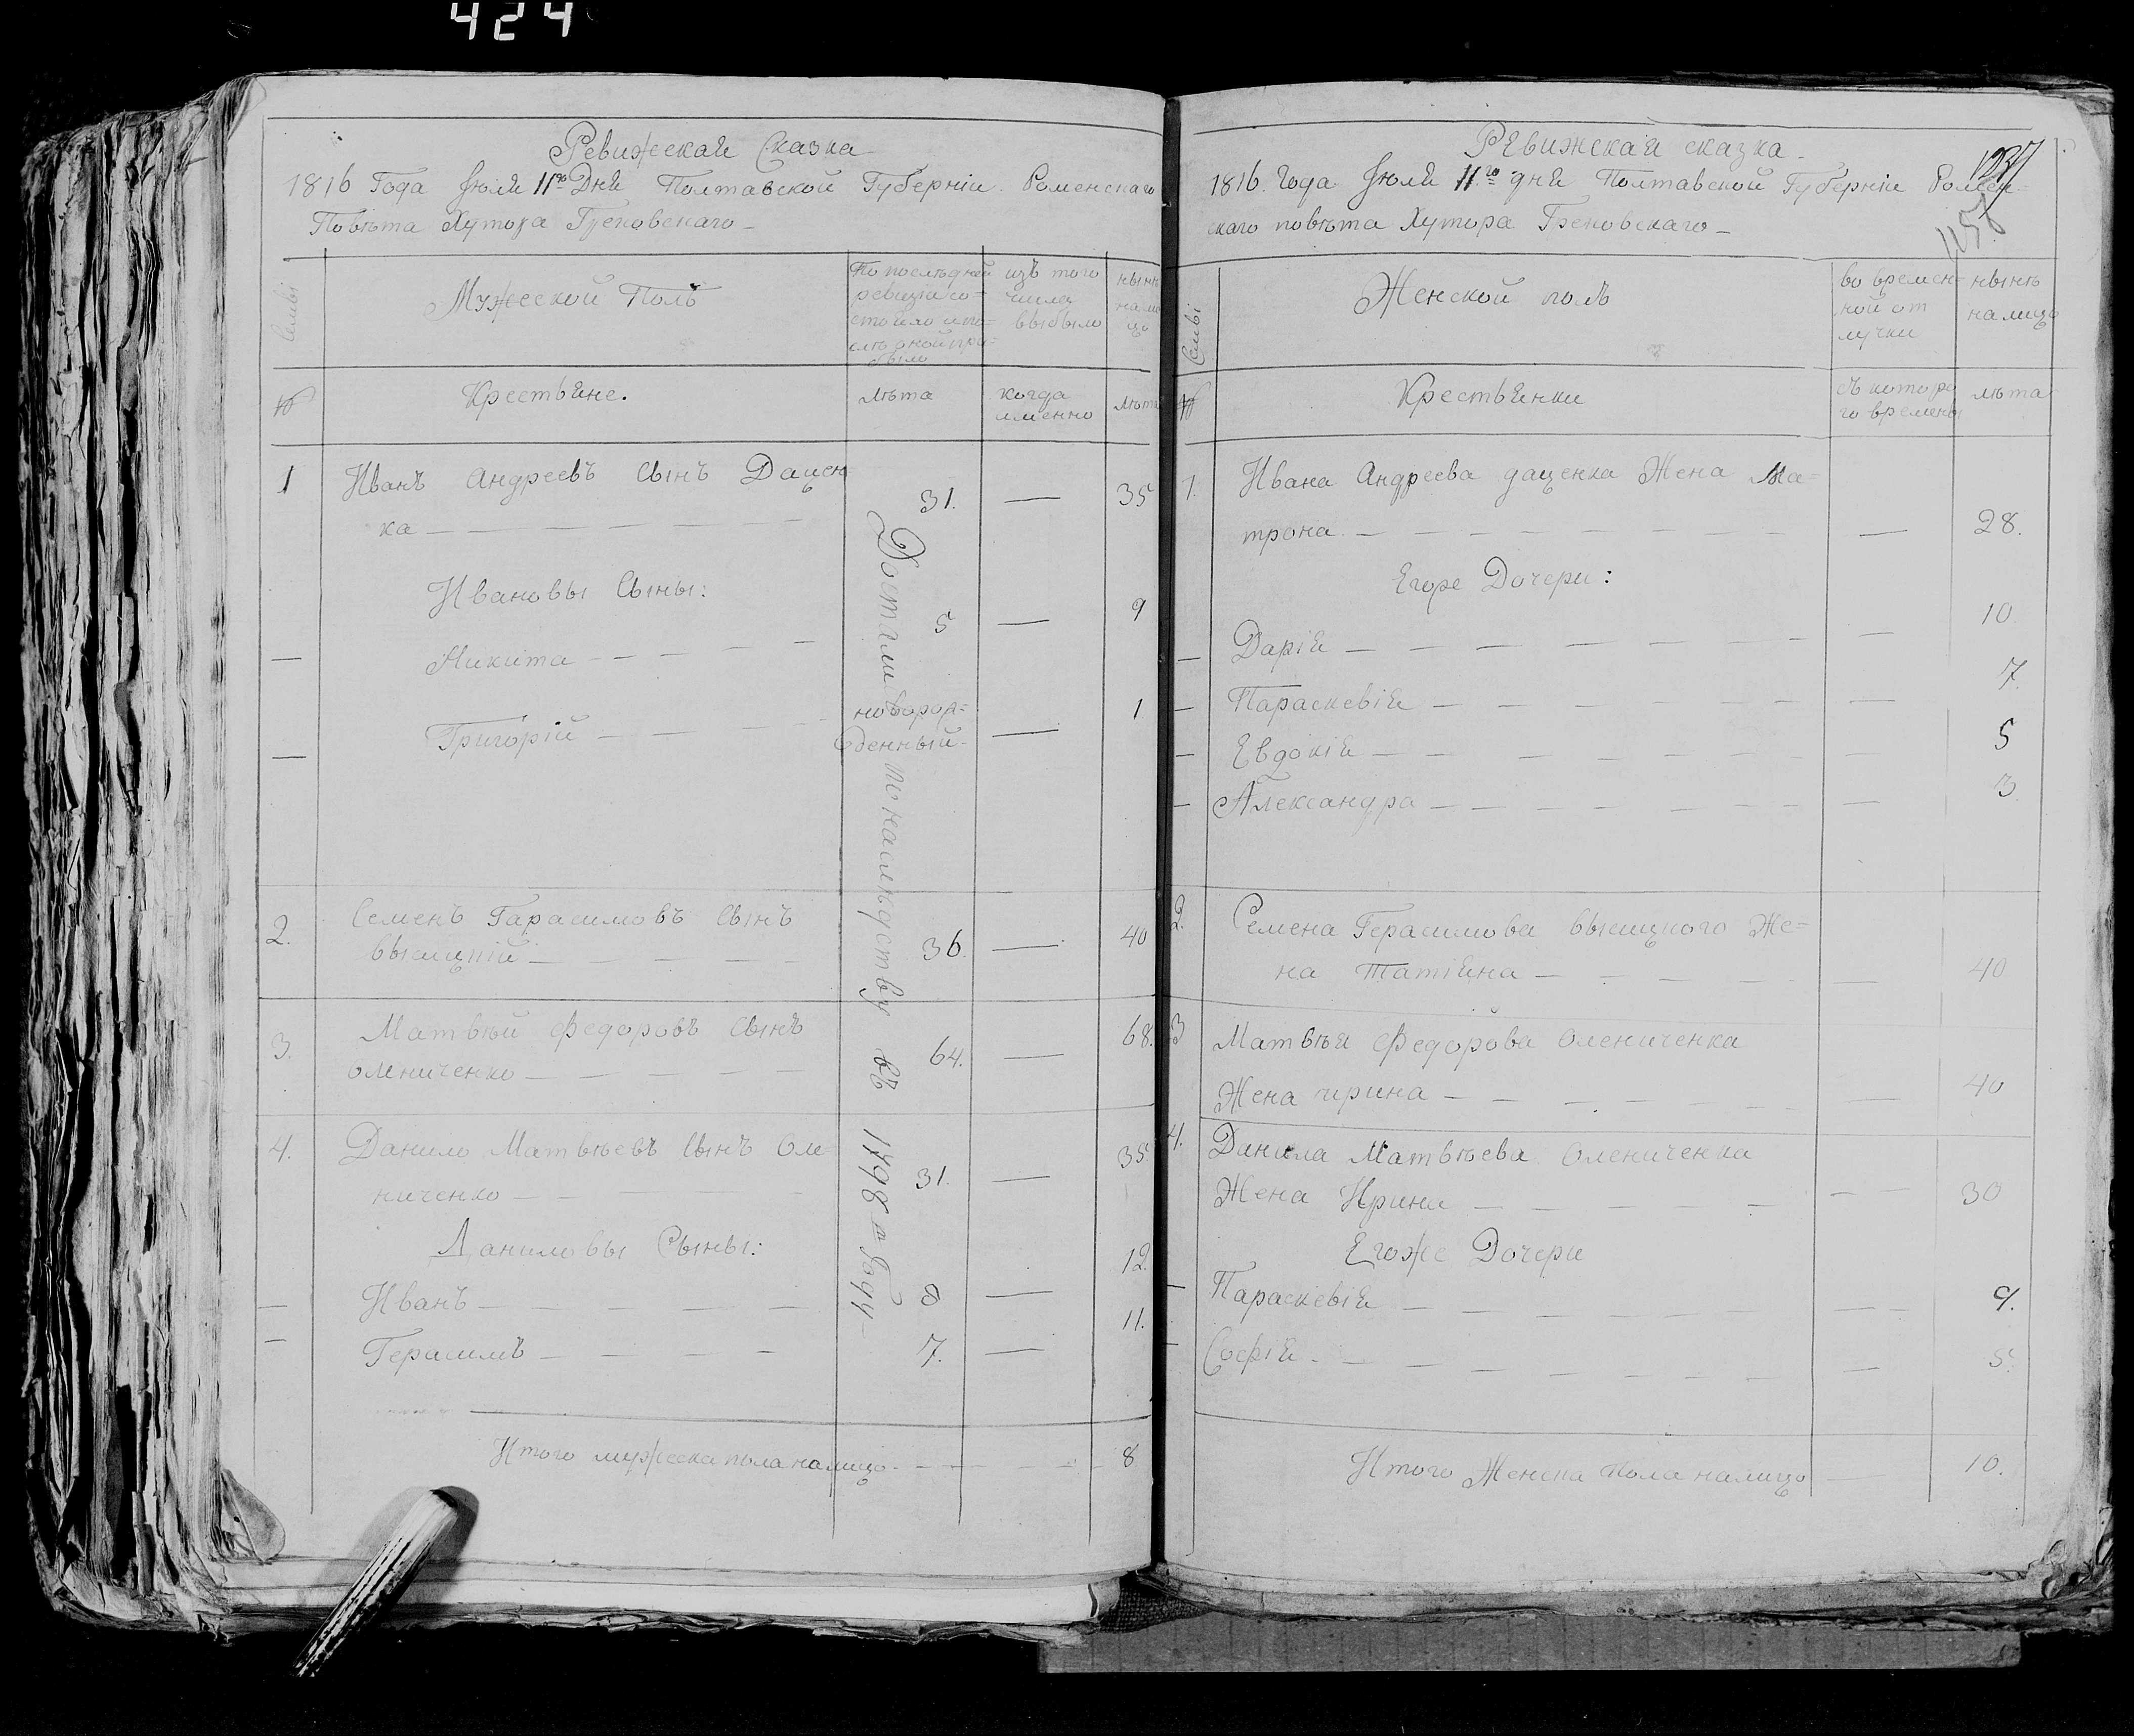 424
Ревижская Сказка
1816 Года Июля 11го Дня Полтавской Губерніи Роменскаго
Повѣта Хутора Грековскаго
Семьи
Мужеской Полъ
По последней ревизіи состояло и последней прибыло
изъ того числа выбыло
нынѣ налицо
№
Крестьяне.
лѣта
когда именно
лѣта
1 Иванъ Андреевъ Сынъ Дацен
ка 31. 35
Ивановы Сыны:
Никита 5 9
Григорій новорож=
денный 1
2. Семенъ Гарасимовъ Сынъ
высицкій 36. 40
3. Матвѣй Федоровъ Сынъ
олениченко 64. 68.
4. Данило Матвѣевъ Сынъ Оле
ниченко 31. 35
Даниловы Сыны:
Иванъ 8 12.
Герасимъ 7. 11.
Достались по наследству въ 1798 м году
Итого мужеска пола налицо 8
1237
1158
Ревижская сказка
1816. Года Июля 11го дня Полтавской Губерніи Ромен=
скаго повѣта Хутора Грековскаго
Семьи
Женской полъ
во времен=
ной от
лучки
нынѣ
налицо
№
Крестьянки
съ которо
го времени
лѣта
1. Ивана Андреева даценка Жена Ма=
трона 28.
Егоже Дочери:
Дарія 10.
Параскевія 7.
Евдокія 5
Александра 3
2. Семена Герасимова высицкого Же=
на Татіяна 40
3 Матвѣя Федорова Олениченка
Жена ирина 40
4. Данила Матвѣева Олениченка
Жена Ирина 30
Егоже Дочери
Параскевія 9.
Софія 5.
Итого Женска Пола налицо 10.